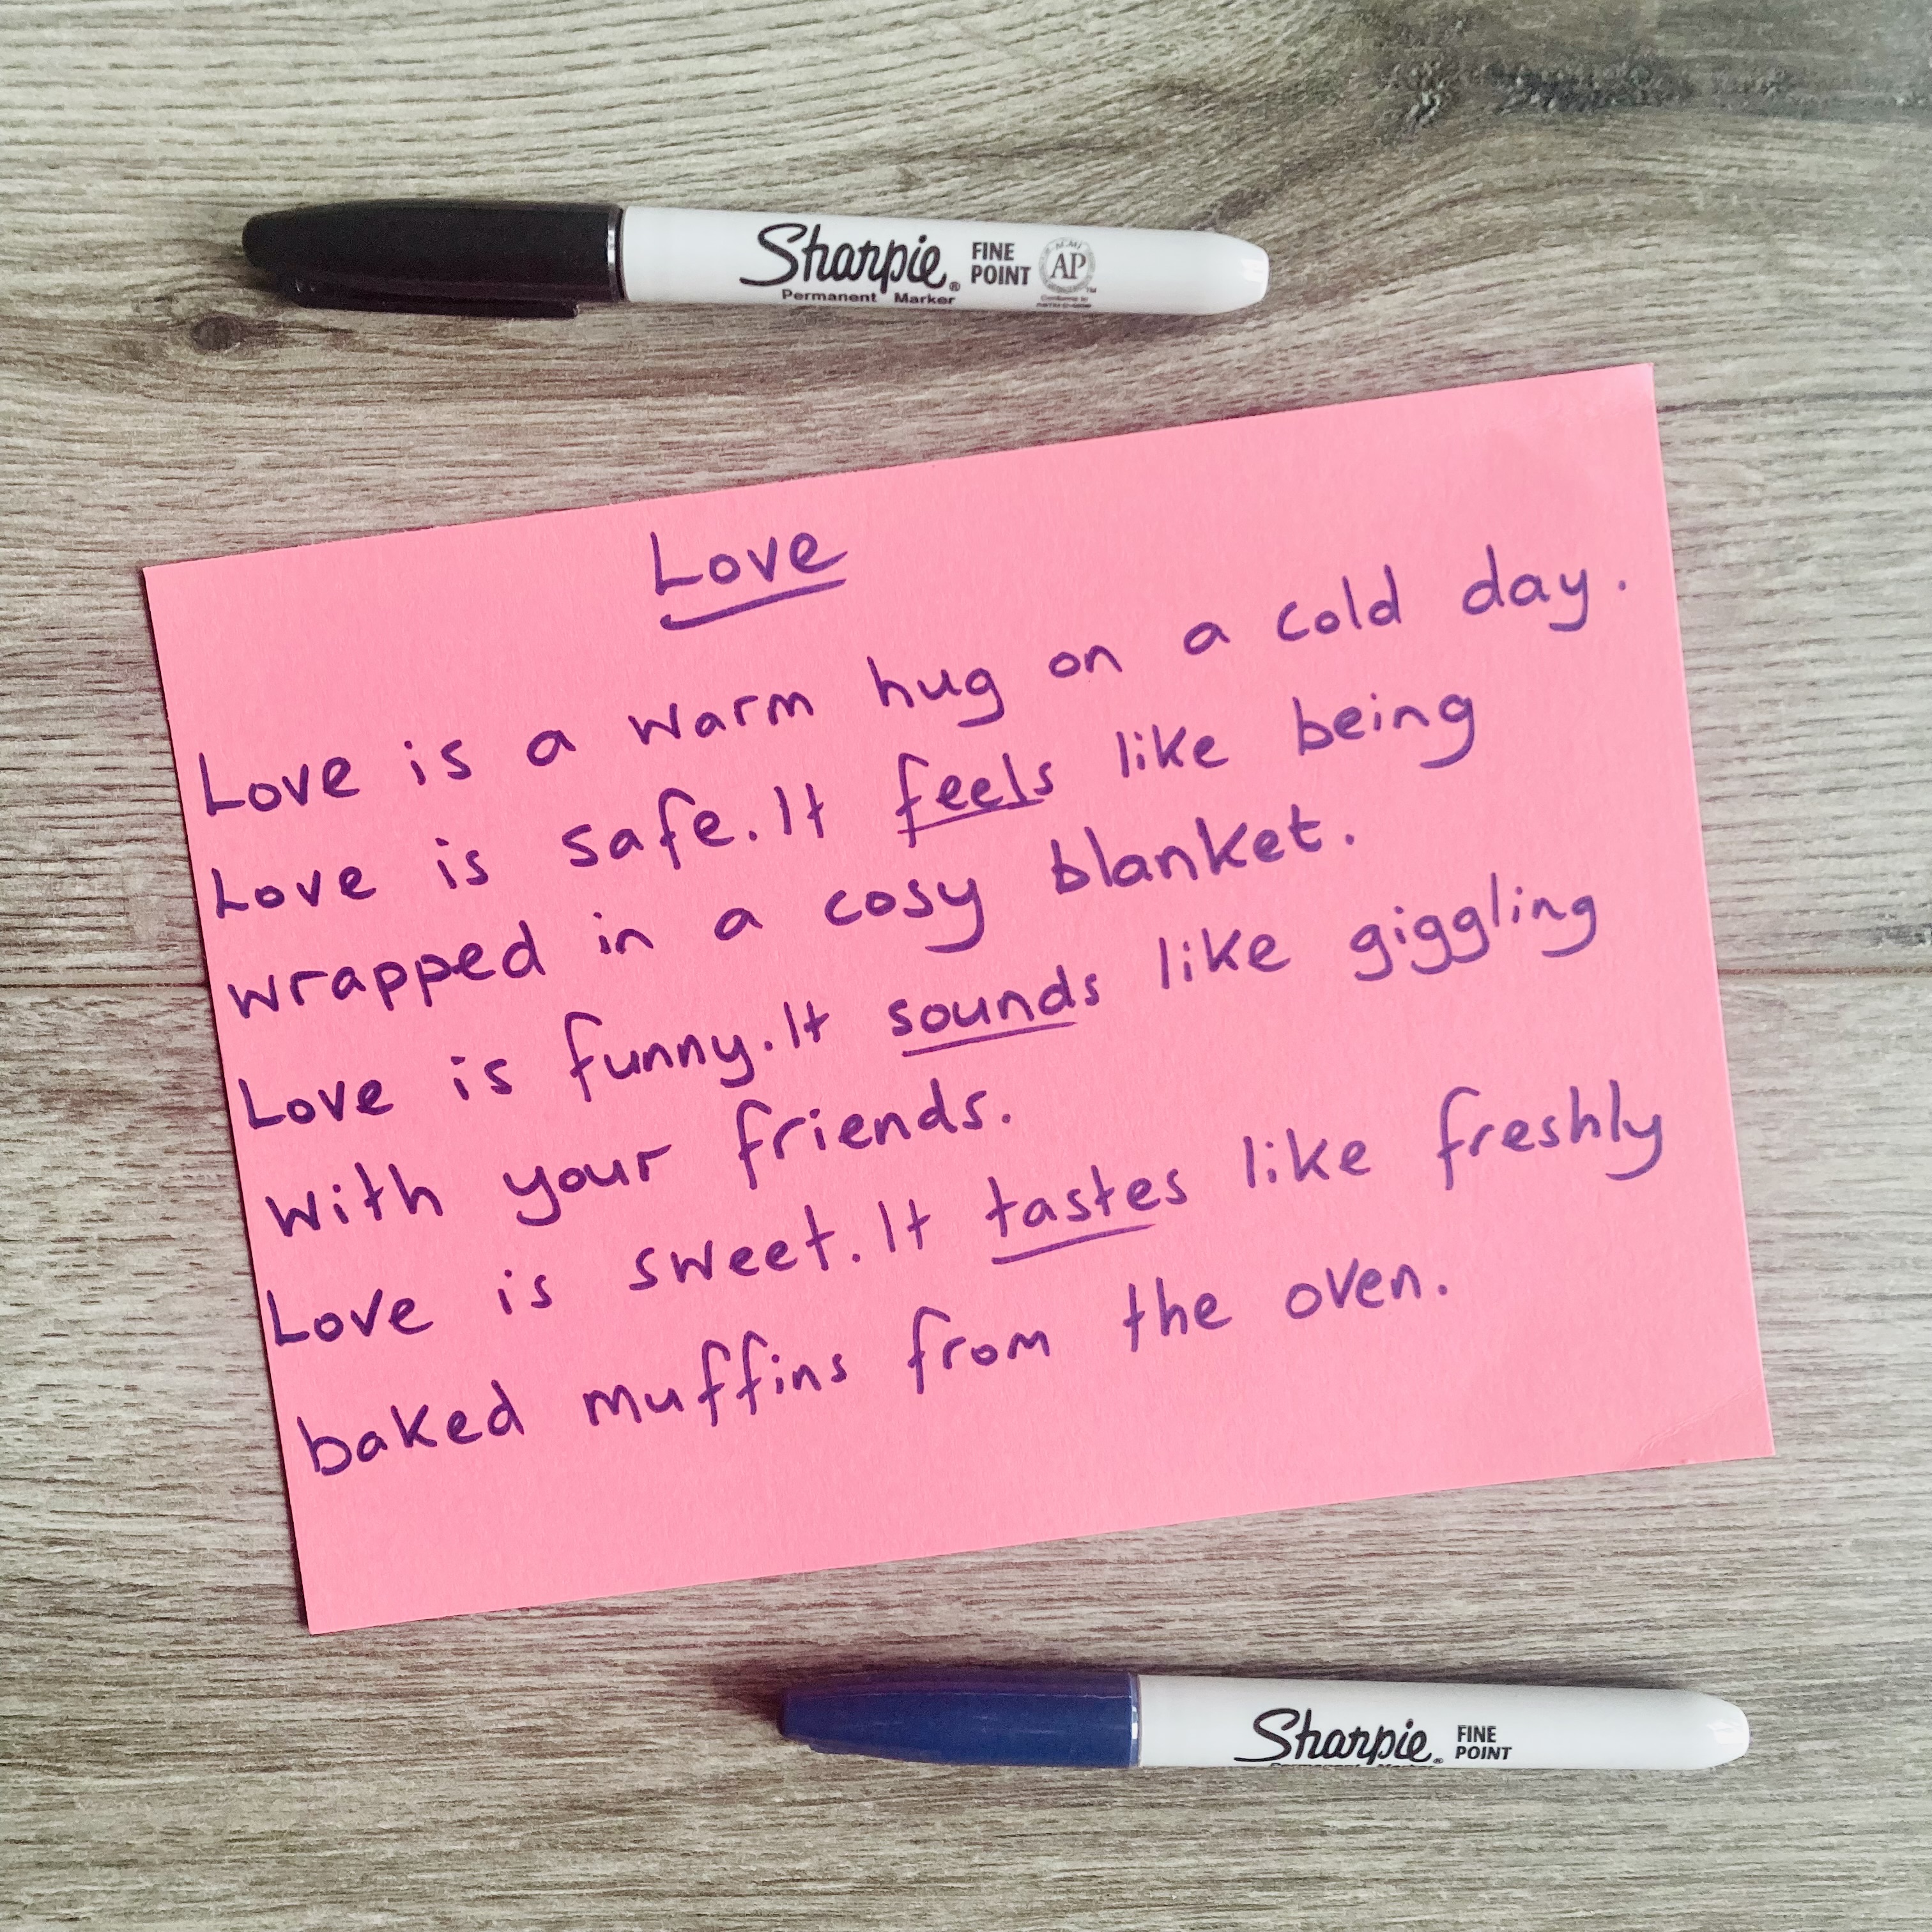 Sharpie® FINE POINT AP
Permanent Marker
Love
Love is a warm hug on a cold day.
Love is safe. It feels like being
wrapped in a cosy blanket.
Love is funny. It sounds like giggling
with your friends.
Love is sweet. It tastes like freshly
baked muffins from the oven.
Sharpie® FINE POINT